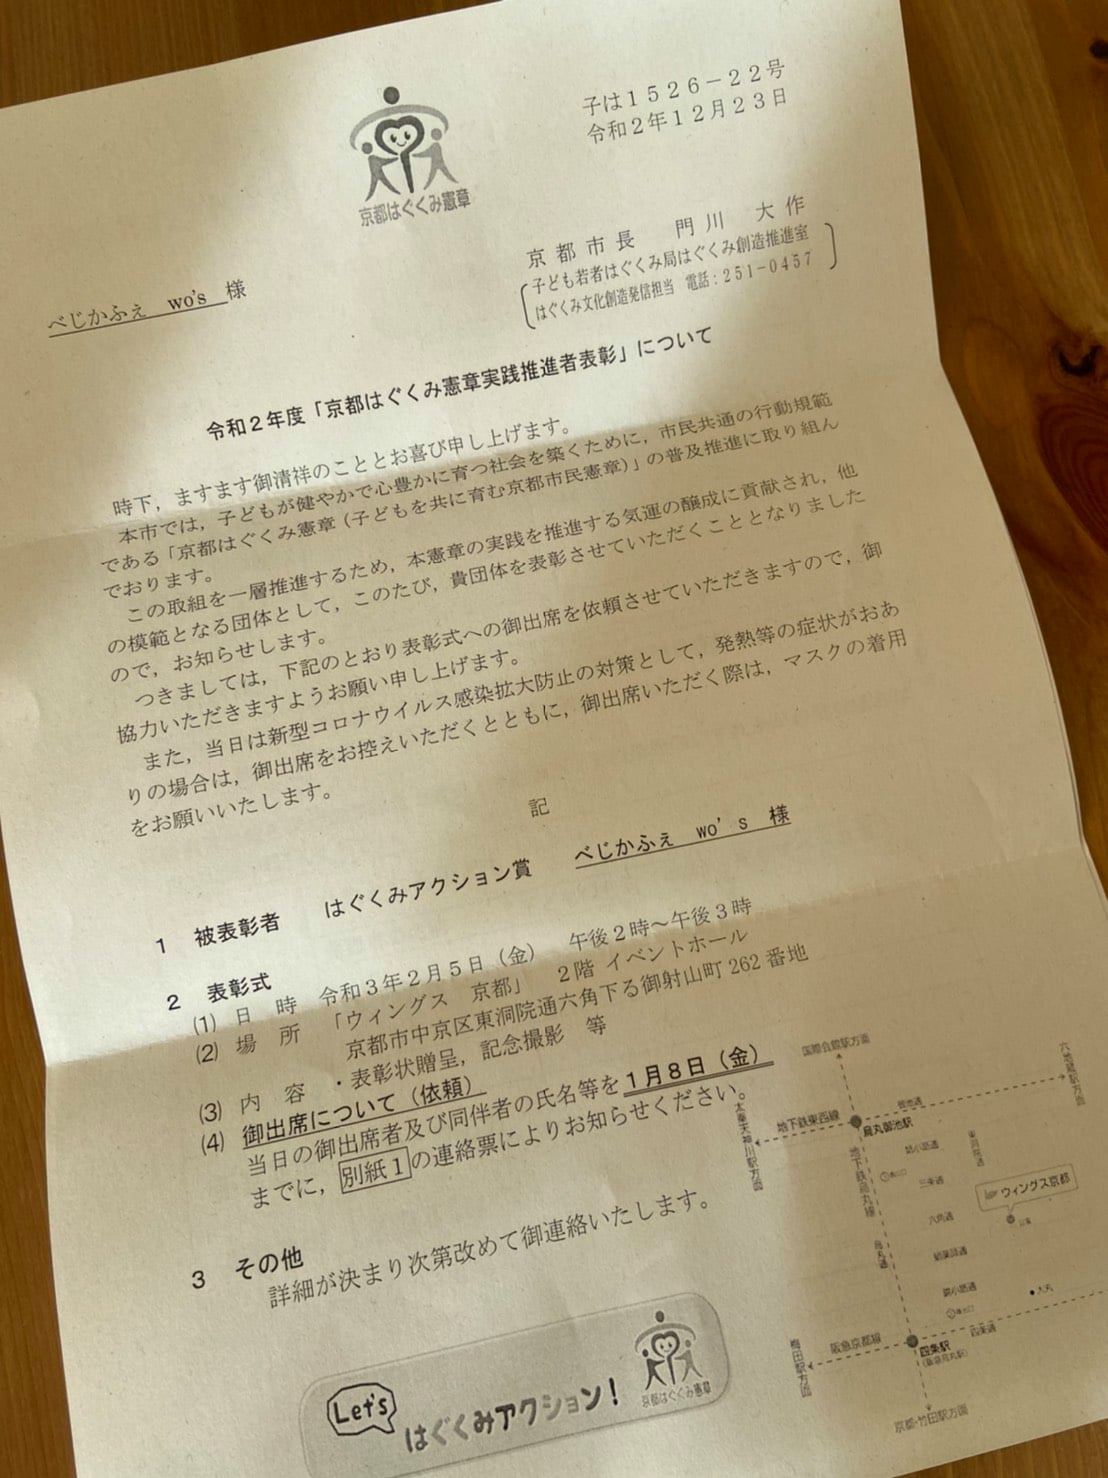 子は１５２６－２２号
令和２年１２月２３日
京都はぐくみ憲章
京都市長　門川　大作
子ども若者はぐくみ局はぐくみ創造推進室
はぐくみ文化創造発信担当　電話：２５１-０４５７
べじかふぇ　wo's　様
令和２年度「京都はぐくみ憲章実践推進者表彰」について
時下，ますます御清祥のこととお喜び申し上げます。
本市では，子どもが健やかで心豊かに育つ社会を築くために，市民共通の行動規範
である「京都はぐくみ憲章（子どもを共に育む京都市民憲章）」の普及推進に取り組ん
でおります。
この取組を一層推進するため，本憲章の実践を推進する気運の醸成に貢献され，他
の模範となる団体として，このたび，貴団体を表彰させていただくこととなりました
ので，お知らせします。
つきましては，下記のとおり表彰式への御出席を依頼させていただきますので，御
協力いただきますようお願い申し上げます。
また，当日は新型コロナウイルス感染拡大防止の対策として，発熱等の症状がおあ
りの場合は，御出席をお控えいただくとともに，御出席いただく際は，マスクの着用
をお願いいたします。
記
１　被表彰者　はぐくみアクション賞　べじかふぇ　wo’s　様
２　表彰式
(1)　日　時　令和３年２月５日（金）　午後２時～午後３時
(2)　場　所　「ウィングス　京都」　２階 イベントホール
京都市中京区東洞院通六角下る御射山町 262 番地
(3)　内　容　・表彰状贈呈，記念撮影　等
(4)　御出席について（依頼）
当日の御出席者及び同伴者の氏名等を１月８日（金）
までに，別紙１の連絡票によりお知らせください。
３　その他
詳細が決まり次第改めて御連絡いたします。
国際会館駅方面
六地蔵駅方面
御池通
地下鉄東西線
烏丸御池駅
太秦天神川駅方面
姉小路通
東洞院通
地下鉄烏丸線
三条通
ウィングス京都
六角通
烏丸通
蛸薬師通
錦小路通
大丸
阪急京都線
四条駅
四条通
梅田駅方面
京都・竹田駅方面
Let's
はぐくみアクション！
京都はぐくみ憲章